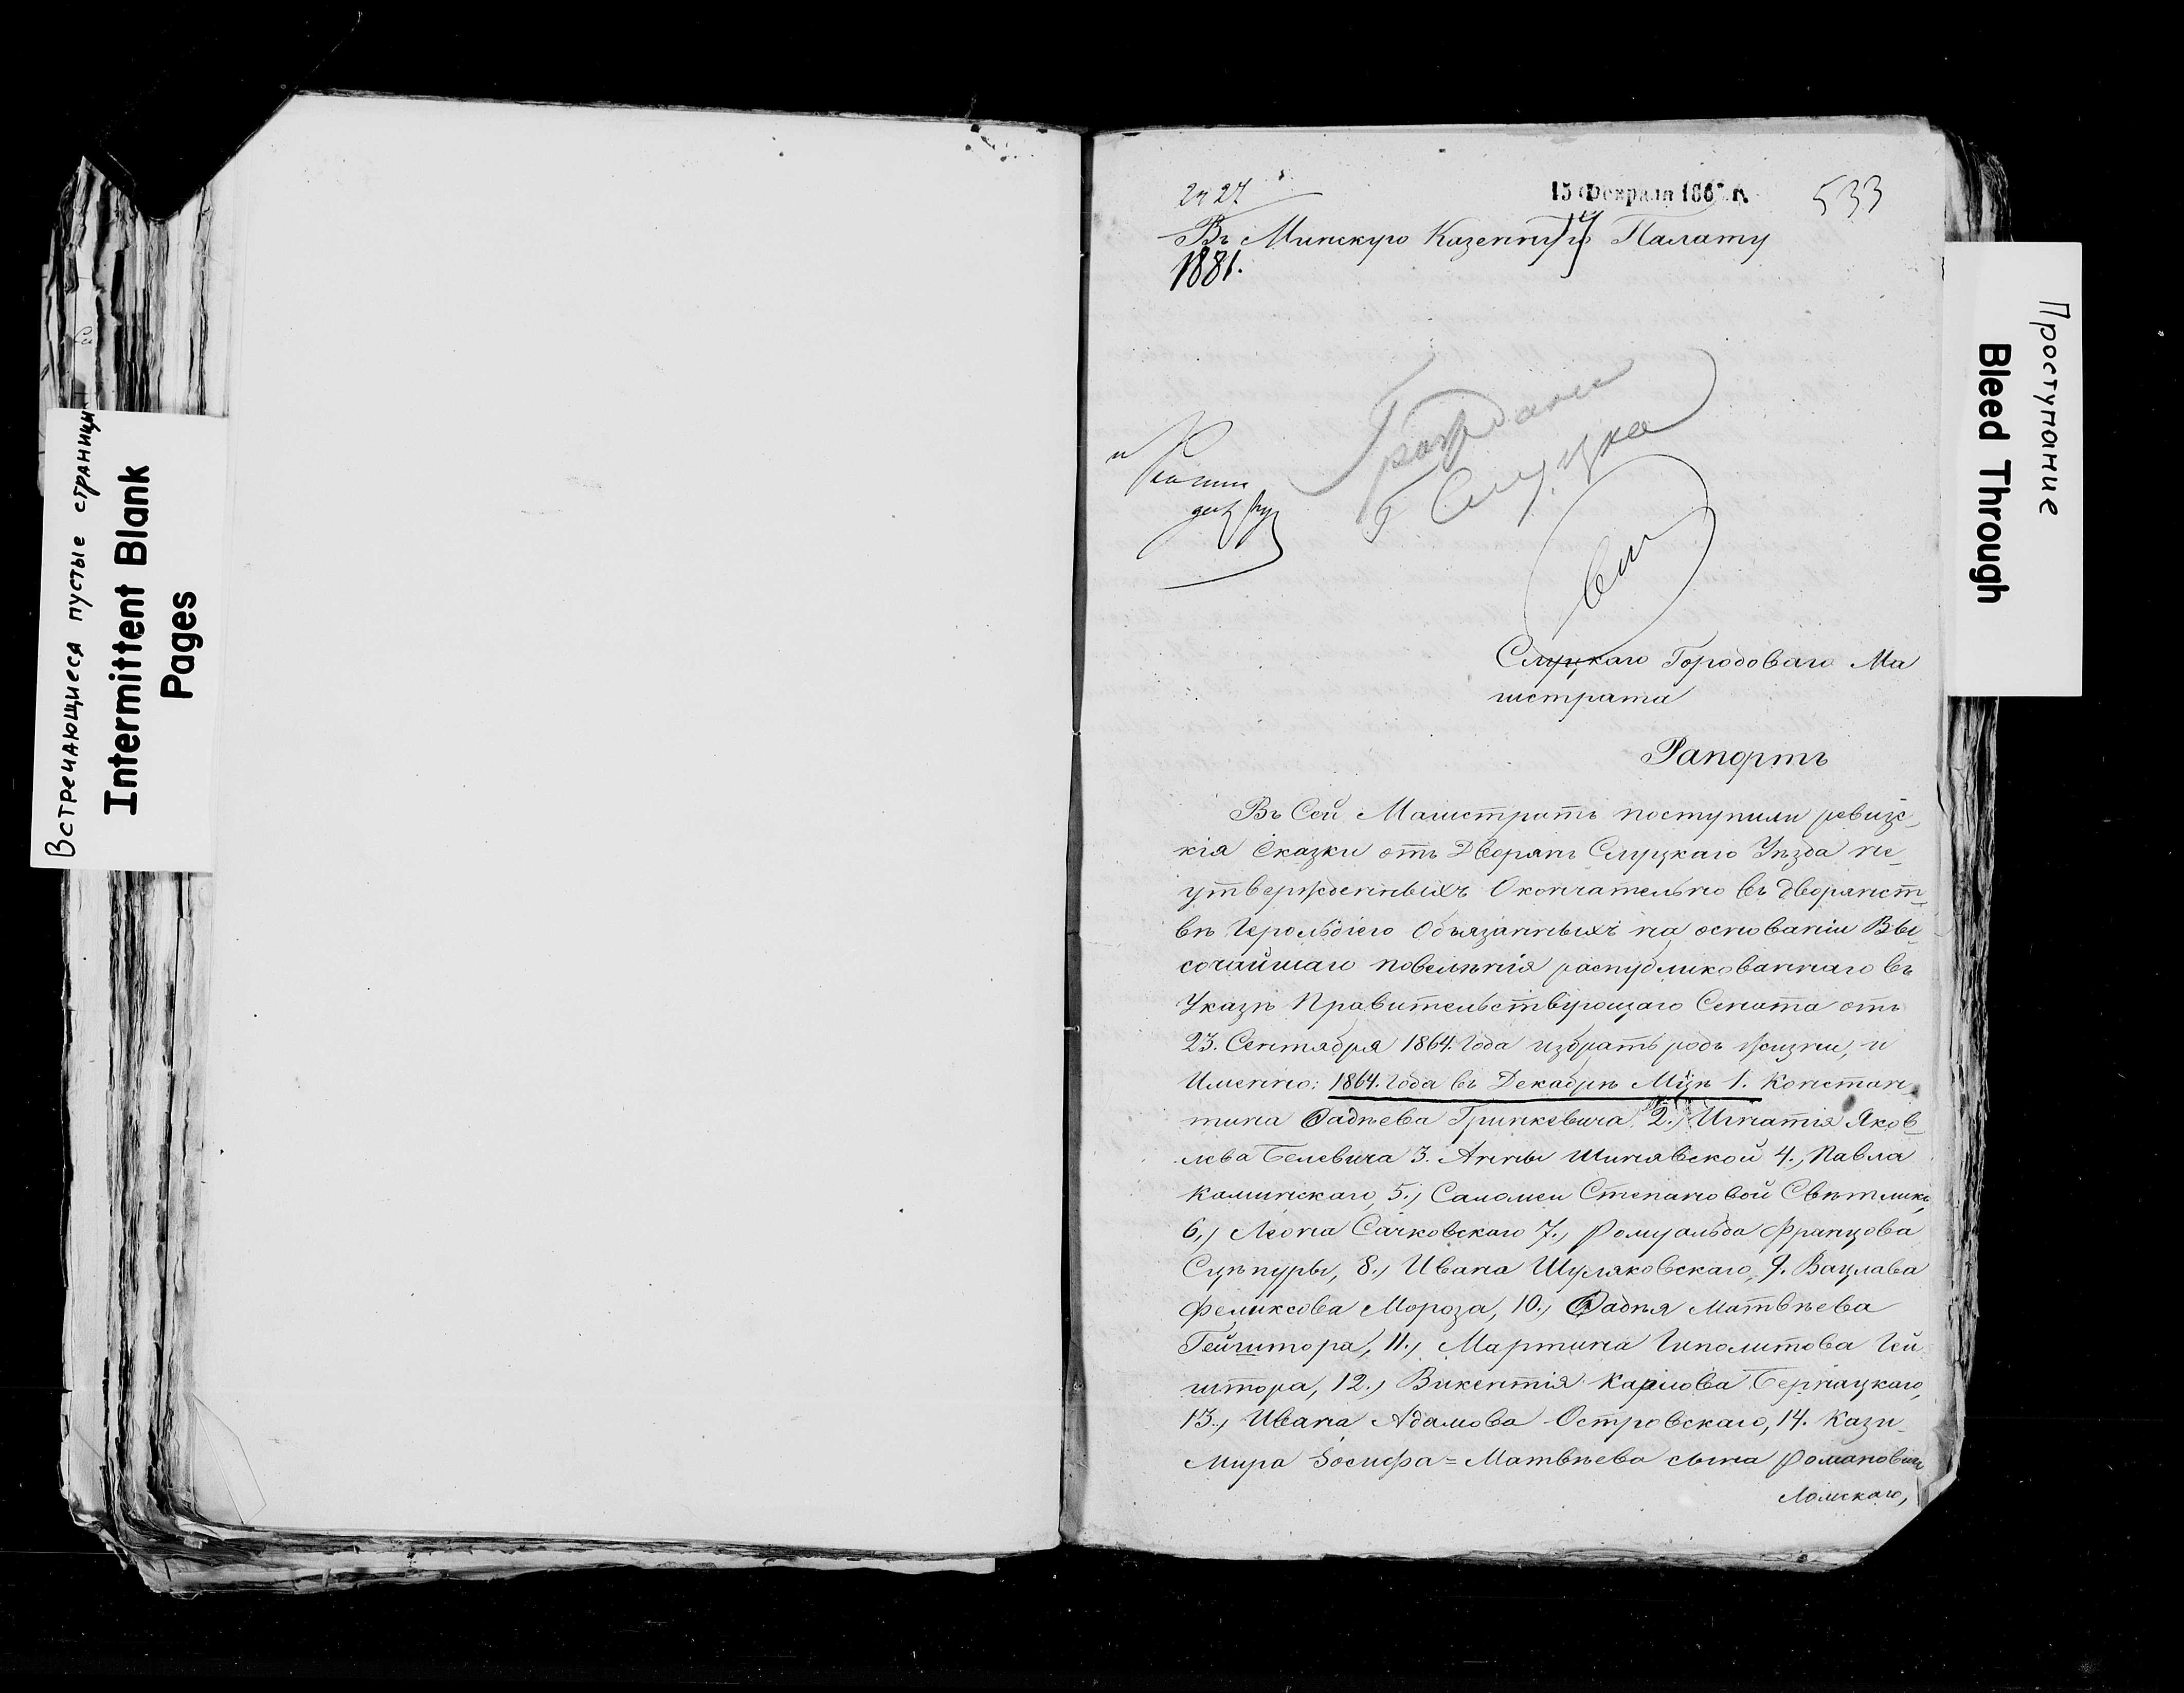 Встречающиеся пустые страницы
Intermittent Blank
Pages
Проступание
Bleed Through
27
15 Февраля 186
533
Въ Минскую Казенную Палату
1881.
Граждане
г Слуцка
Слуцкаго Городоваго Ма
гистрата
Рапортъ
Въ Сей Магистратъ поступили ревизс-
кія Сказки отъ Дворянъ Слуцкаго Уѣзда не-
утвержденныхъ Окончательно въ дворянст-
вѣ Герольдіею Обязанныхъ на основаніи Вы-
сочайшаго повелѣнія распубликованнаго въ
Указѣ Правительствующаго Сената отъ
23. Сентября 1864. Года избрать родъ жизни, и
Именно: 1864. Года въ Декабрѣ Мцѣ 1. Констан-
тина Фадѣева Гринкевича 2., Игнатія Яков-
лева Белевича 3. Анны Шинявской 4., Павла
Каминскаго, 5., Саломеи Степановой Свѣтлик
6., Леона Сачковскаго 7., Ромуальда Францова
Сцѣпуры, 8., Ивана Шуляковскаго, 9. Вацлава
Феликсова Мороза, 10., Фадѣя Матвѣева
Гейштора, 11., Мартина Иполитова Гей
штора, 12., Викентія Карлова Бернацкаго,
13., Ивана Адамова Островскаго, 14. Кази-
мира Іосифа=Матвѣева сына Романович
Ломскаго,